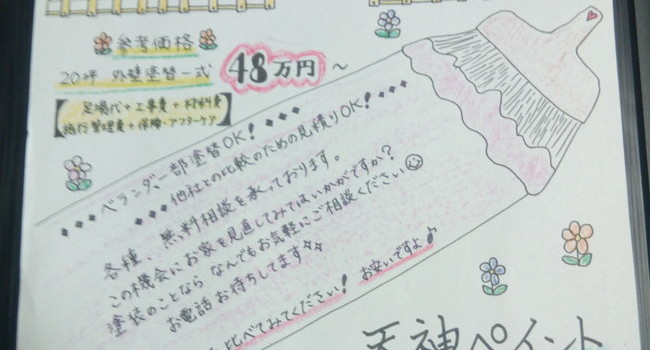 参考価格
20坪 外壁塗替一式 48万円～
【足場代+工事費+材料費
施行管理費+保障・アフターケア】
◆◆◆ベランダ一部塗替OK!◆◆◆
◆◆◆他社との比較のための見積りOK!◆◆◆
各種、無料相談を承っております。
この機会にお家を見直してみてはいかがですか?
塗装のことなら なんでもお気軽にご相談ください☺
お電話お待ちしてます
比べてみてください! お安いですよ♪
天神ペイント